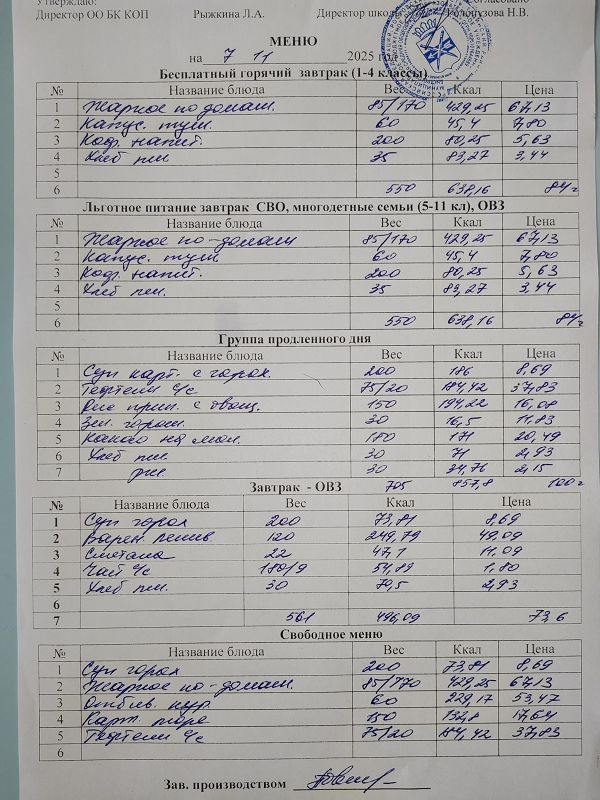 Утверждаю: Согласовано
Директор ОО БК КОП Рыжкина Л.А. Директор школы Голопузова Н.В.
МЕНЮ
на 7 11 2025 год
Бесплатный горячий завтрак (1-4 классы)
№ Название блюда Вес Ккал Цена
1 Жаркое по домаш. 85/170 429,25 67,13
2 Капус. туш. 60 45,4 7,80
3 Коф. напит. 200 80,25 5,63
4 Хлеб пш 35 83,27 3,44
5
6 550 638,16 84
Льготное питание завтрак СВО, многодетные семьи (5-11 кл), ОВЗ
№ Название блюда Вес Ккал Цена
1 Жаркое по-домаш 85/170 429,25 67,13
2 Капус. туш 60 45,4 7,80
3 Коф. напит. 200 80,25 5,63
4 Хлеб пш. 35 83,27 3,44
5
6 550 638,16 84
Группа продленного дня
№ Название блюда Вес Ккал Цена
1 Суп карт. с горох. 200 186 8,69
2 Тефтели с/с 75/20 184,42 37,83
3 Рис прип. с овощ. 150 194,22 16,08
4 Зел. горош. 30 16,5 11,83
5 Какао на мол. 180 171 20,49
6 Хлеб пш. 30 71 2,93
7 рж. 30 34,76 2,15
Завтрак - ОВЗ 705 857,8 100
№ Название блюда Вес Ккал Цена
1 Суп горох 200 73,81 8,69
2 Варен. ленив 120 249,79 49,09
3 Сметана 22 47,1 11,09
4 Чай с/с 180/9 54,89 1,80
5 Хлеб пш. 30 70,5 2,93
6
7 561 496,09 73,6
Свободное меню
№ Название блюда Вес Ккал Цена
1 Суп горох 200 73,81 8,69
2 Жаркое по-домаш. 85/170 429,25 67,13
3 Отбив. кур. 60 229,17 53,47
4 Карт. пюре 150 132,8 17,64
5 Тефтели с/с 75/20 184,42 37,83
6
Зав. производством